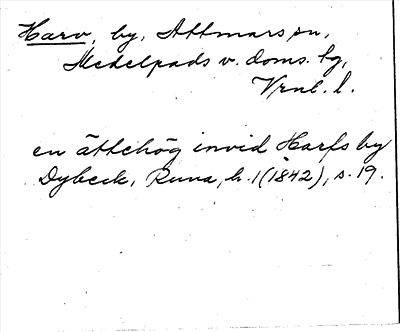 Harv, by, Attmars sn,
Medelpads v. doms. lg,
Vrnl. l.
en ättehög invid Harfs by
Dybeck, Runa, h. 1 (1842), s. 19.